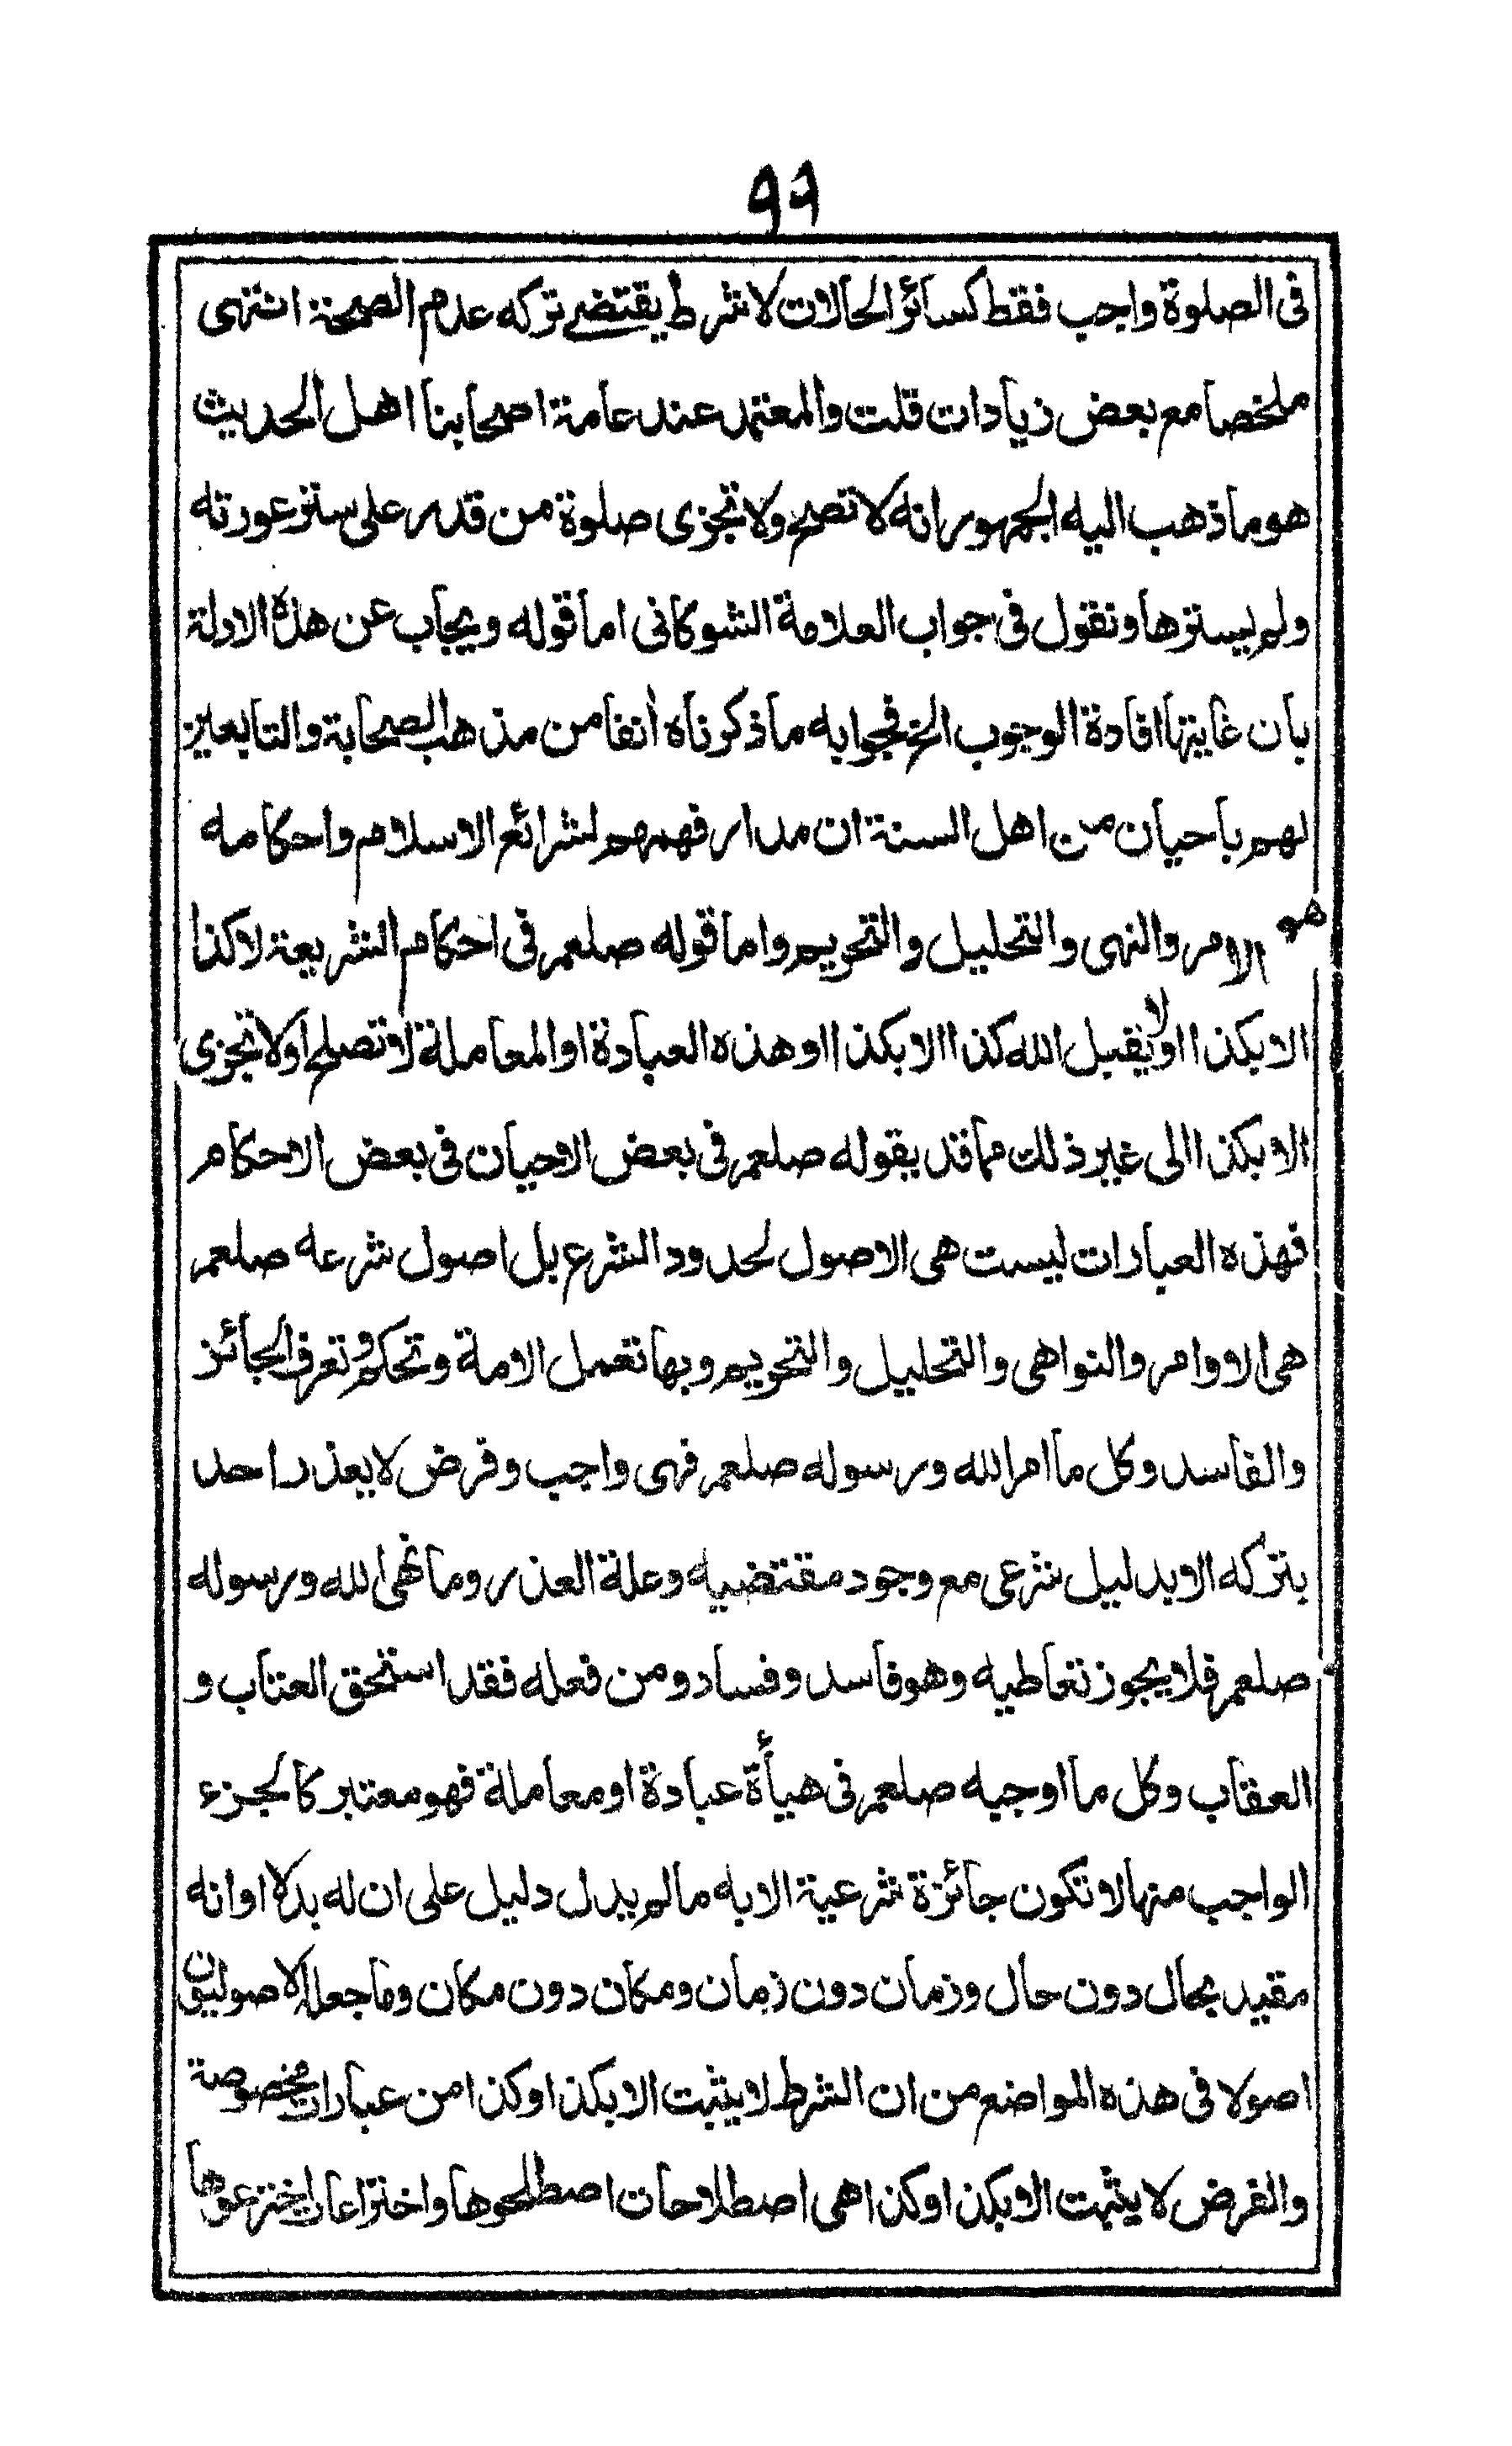 ٩٩
فى الصلوة واجب فقط كسائر الحالات لا شرط يقتضے تركه عدم الصحة انتهى
ملخصا مع بعض زيادات قلت والمعتمد عند عامة اصحابنا اهل الحديث
هو ما ذهب اليه الجمهور انه لا تصح ولا تجزى صلوة من قدر على ستر عورته
ولم يسترها ونقول فى جواب العلامة الشوكانى اما قوله ويجاب عن هذه الادلة
بان غايتها افادة الوجوب الخ فجوابه ما ذكرناه أنفا من مذهب الصحابة والتابعين
لهم باحيان من اهل السنة ان مدار فهمهم لشرائع الاسلام واحكامه
هو الامر والنهى والتحليل والتحريم واما قوله صلعم فى احكام الشريعة لا كذا
الا بكذا او لا يقبل الله كذا الا بكذا او هذه العبادة او المعاملة لا تصلح او لا تجزى
الا بكذا الى غير ذلك مما قد يقوله صلعم فى بعض الاحيان فى بعض الاحكام
فهذه العبارات ليست هى الاصول لحدود الشرع بل اصول شرعه صلعم
هى الاوامر والنواهى والتحليل والتحريم وبها تعمل الامة وتحكم وتعرف الجائز
والفاسد وكل ما امر الله ورسوله صلعم فهى واجب وفرض لا يعذر احد
بتركه الا بدليل شرعى مع وجود مقتضيه وعلة العذر وما نهى الله ورسوله
صلعم فلا يجوز تعاطيه وهو فاسد وفساد ومن فعله فقد استحق العتاب و
العقاب وكل ما اوجبه صلعم فى هيأة عبادة او معاملة فهو معتبر كالجزء
الواجب منها لا تكون جائزة شرعية الا به ما لم يدل دليل على ان له بدلا او انه
مقيد بحال دون حال وزمان دون زمان ومكان دون مكان وما جعله الاصوليون
اصولا فى هذه المواضع من ان الشرط لا يثبت الا بكذا او كذا من عبارات مخصوصة
والفرض لا يثبت الا بكذا او كذا هى اصطلاحات اصطلحوها واختراعات اخترعوها